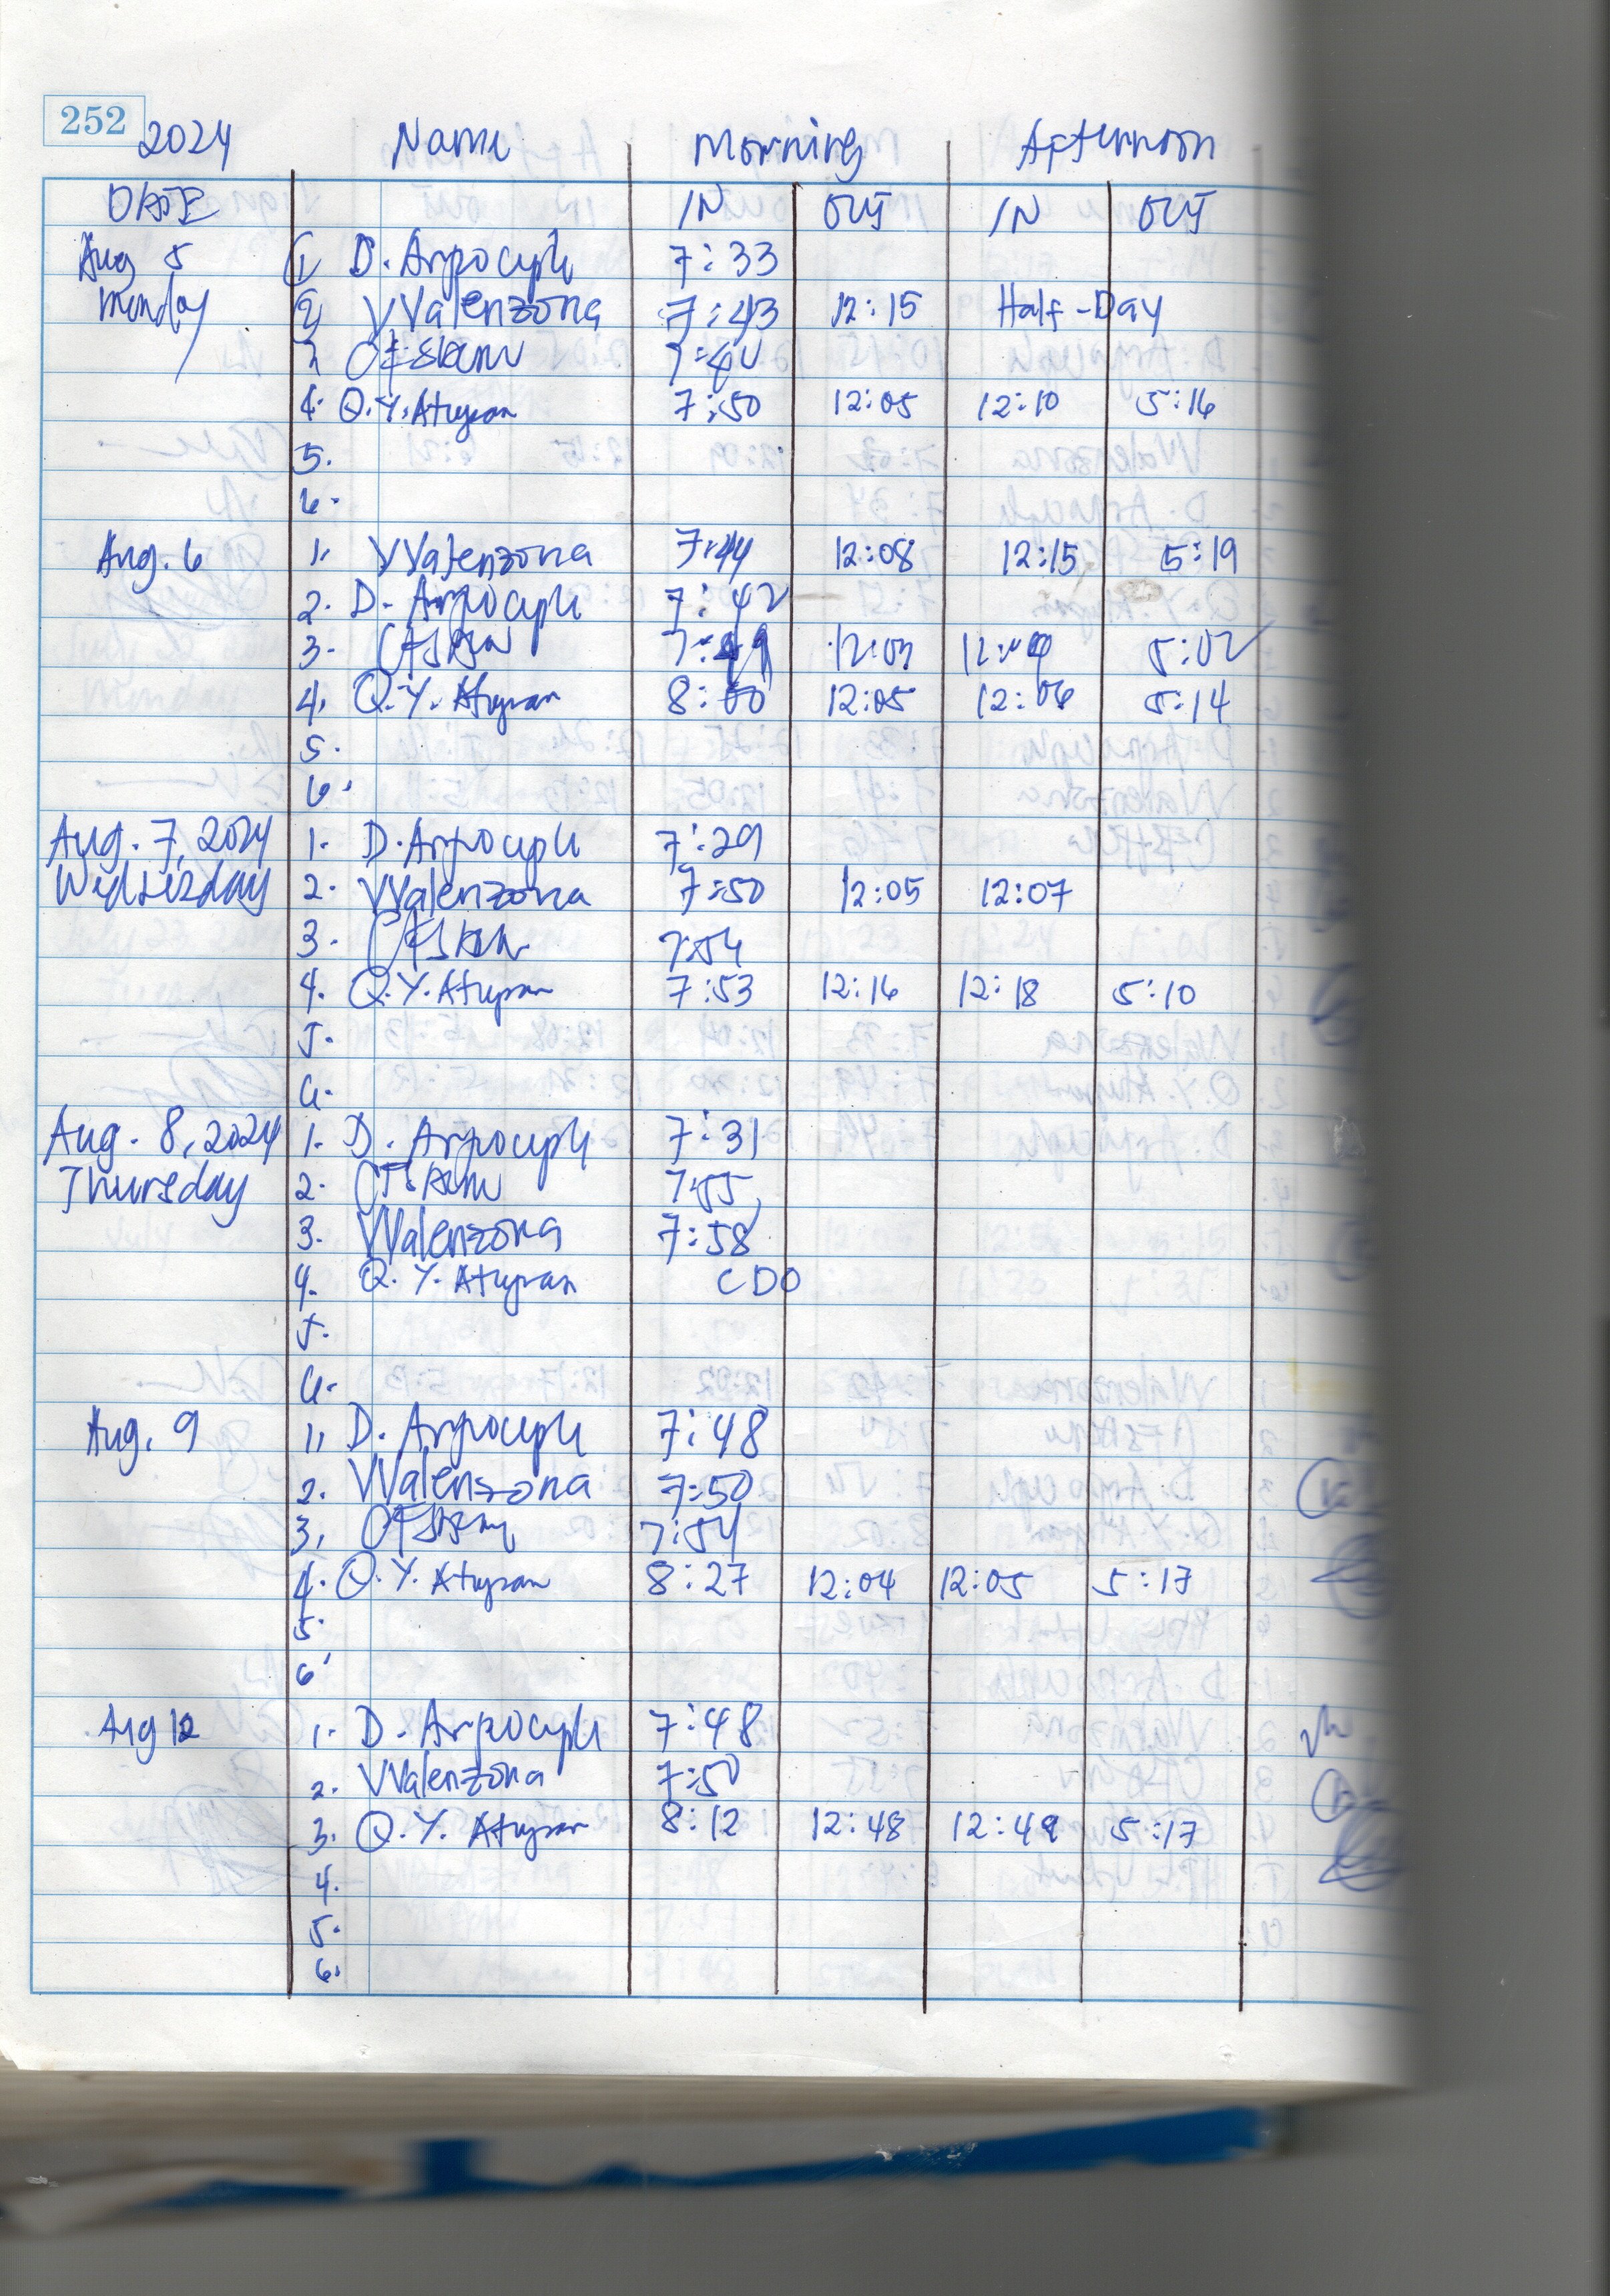 252
2024 Name Morning Afternoon
DATE IN OUT IN OUT
Aug 5 1 D. Arpocuph 7:33
Monday 2 VValenzona 7:43 12:15 Half-Day
3
4. Q.Y. Atupan 7:50 12:05 12:10 5:16
5.
6.
Aug. 6 1. VValenzona 7:44 12:08 12:15 5:19
2. D. Arpocuph 7:42
3. 5:02
4. Q.Y. Atupan 8:00 12:05 12:06 5:14
5.
6.
Aug. 7, 2024 1. D. Arpocuph 7:29
2. VValenzona 7:50 12:05 12:07
3. 7:54
4. Q.Y. Atupan 7:53 12:16 12:18 5:10
5.
6.
Aug. 8, 2024 1. D. Arpocuph 7:31
Thursday 2. 7:55
3. VValenzona 7:58
4. Q.Y. Atupan CDO
5.
6.
Aug. 9 1. D. Arpocuph 7:48
2. VValenzona 7:50
3. 7:54
4. Q.Y. Atupan 8:27 12:04 12:05 5:17
5.
6.
Aug 12 1. D. Arpocuph 7:48
2. VValenzona 7:50
3. Q.Y. Atupan 8:12 12:48 12:49 5:17
4.
5.
6.